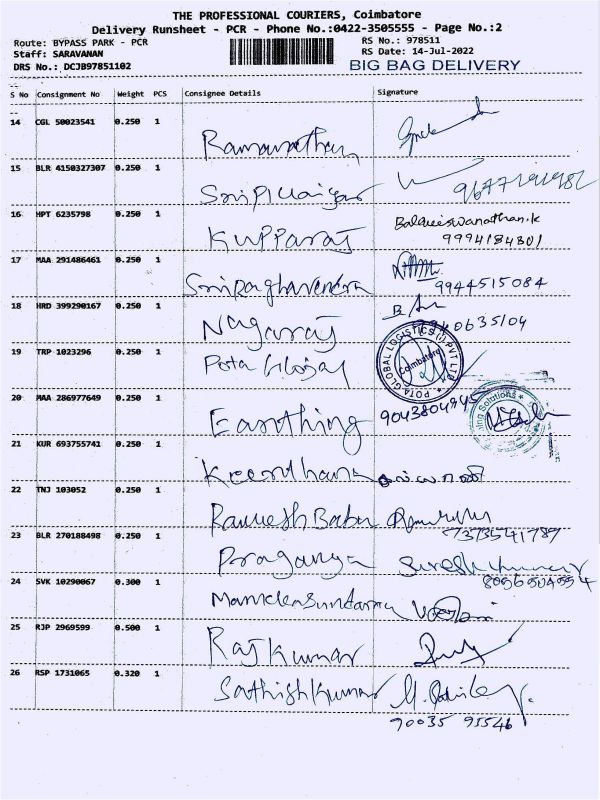 THE PROFESSIONAL COURIERS, Coimbatore
Delivery Runsheet - PCR - Phone No.:0422-3505555 - Page No.:2
Route: BYPASS PARK - PCR
RS No.: 978511
Staff: SARAVANAN
RS Date: 14-Jul-2022
DRS No.: DCJB97851102
BIG BAG DELIVERY
S No Consignment No Weight PCS Consignee Details Signature
14 CGL 50023541 0.250 1 Ramanathan
15 BLR 4150327307 0.250 1
16 HPT 6235798 0.250 1 Kupparaj Balaviswanathan.k
9994184801
17 MAA 291486461 0.250 1 Sri Raghavendra
9944515084
18 HRD 399290167 0.250 1 Nagaraj
19 TRP 1023296 0.250 1 Pota Global
POTA GLOBAL LOGISTICS (I) PVT LTD
Coimbatore
9043804945
20 MAA 286977649 0.250 1 Earthing
Solutions
21 KUR 693755741 0.250 1 Keerthana
22 TNJ 103052 0.250 1 Ramesh Babu
7373541787
23 BLR 270188498 0.250 1 Praganya Sureshkumar
24 SVK 10290067 0.300 1 Manickasundaram
25 RJP 2969599 0.500 1 Raj Kumar
26 RSP 1731065 0.320 1 Sathish Kumar
90035 95546